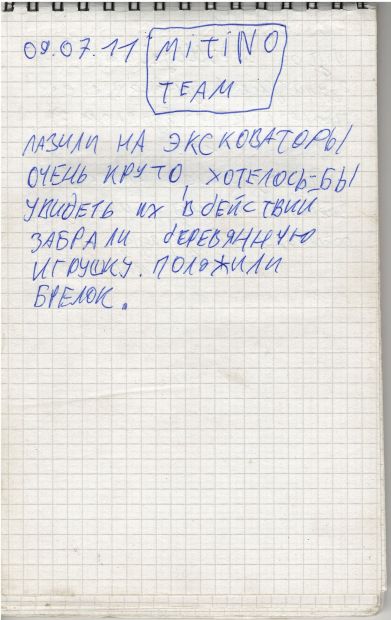 09.07.11 MiTiNO
TEAM
ЛАЗИЛИ НА ЭКСКОВАТОРЫ
ОЧЕНЬ КРУТО, ХОТЕЛОСЬ-БЫ
УВИДЕТЬ ИХ В ДЕЙСТВИИ
ЗАБРАЛИ ДЕРЕВЯННУЮ
ИГРУШКУ. ПОЛОЖИЛИ
БРЕЛОК.